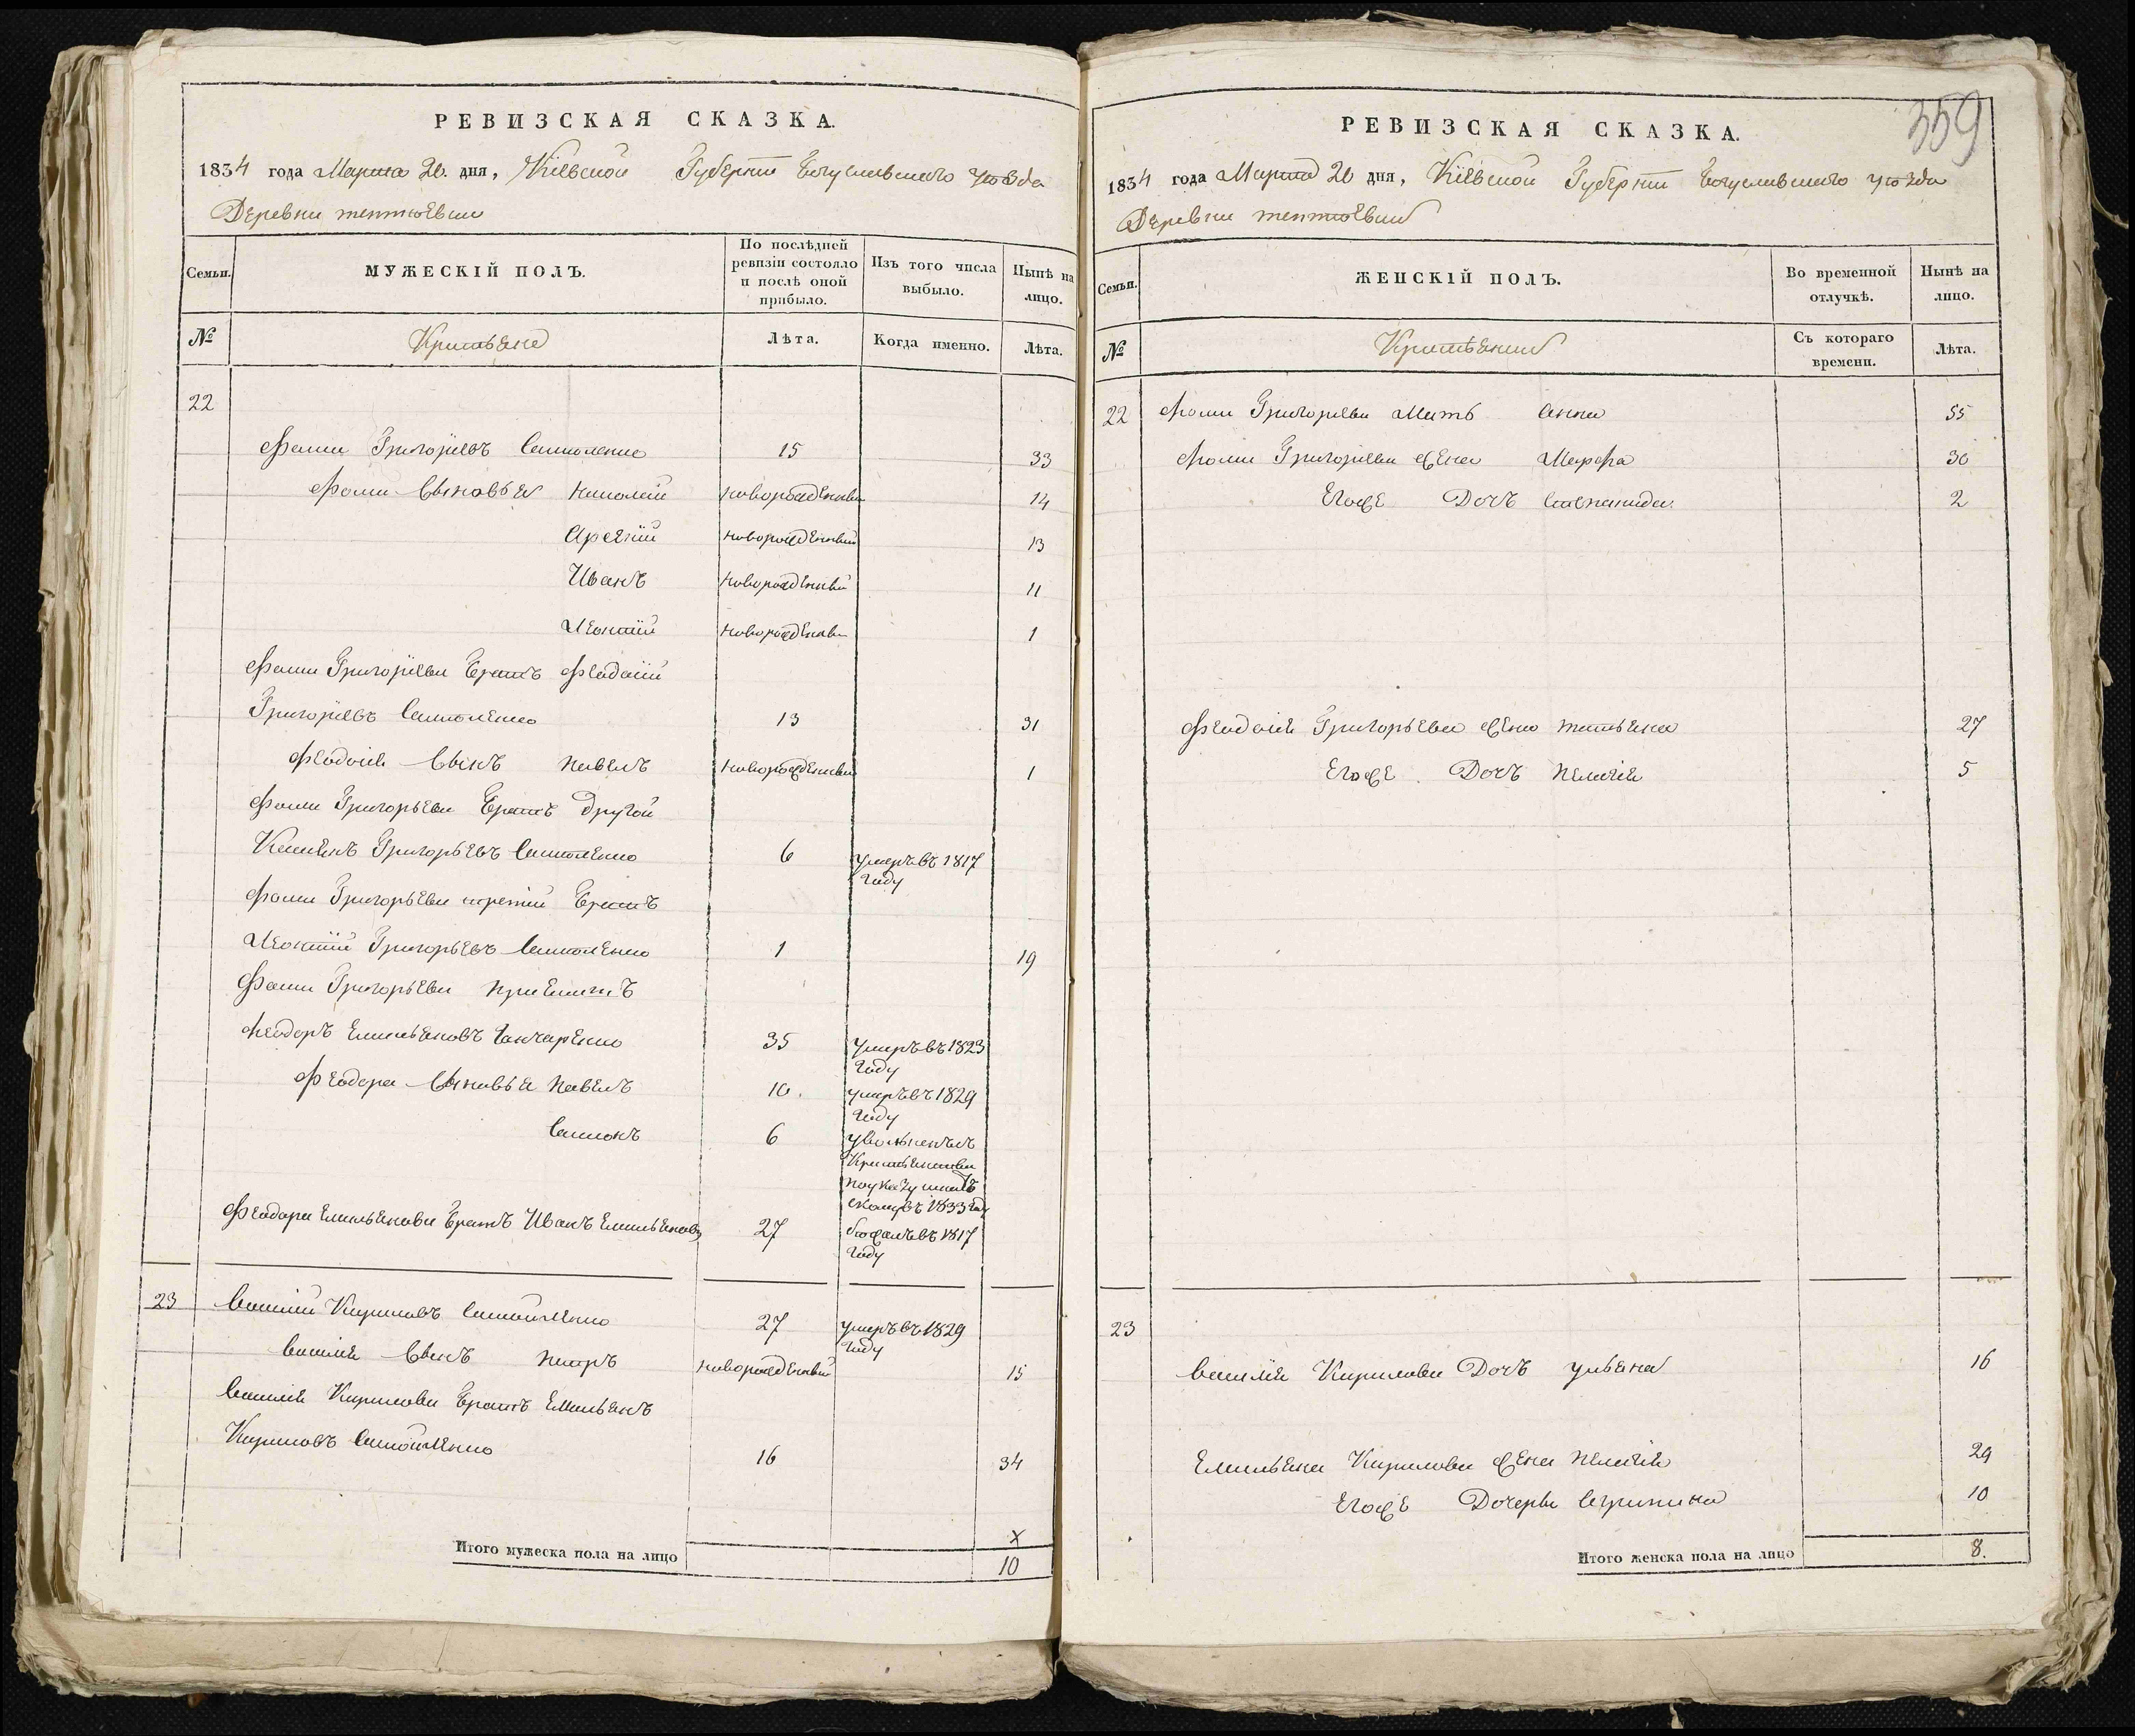 РЕВИЗСКАЯ СКАЗКА.
1834 года Марта 20. дня, Кіевской Губерніи Богуславского уѣзда
Деревни тептіевки
Семьи.
МУЖЕСКІЙ ПОЛЪ.
По послѣдней ревизіи состояло и послѣ оной прибыло.
Изъ того числа выбыло.
Нынѣ на лицо.
№
Крестьяне
Лѣта.
Когда именно.
Лѣта.
22
Фома Григоріевъ Самоленко 15 33
Фомы Сыновья Николай новорожденный 14
Арсеній новорожденный 13
Иванъ новорожденный 11
Леонтій новорожденный 1
Фомы Григоріева Братъ Феодосій
Григоріевъ Самоленко 13 31
Феодосія Сынъ Павелъ новорожденный 1
Фомы Григорьева Братъ другой
Григорьевъ Самоленко 6 умеръ въ 1817
году
Фомы Григорьева третій Братъ
Леонтій Григорьевъ Самоленко 1 19
Фомы Григорьева приемышъ
Феодоръ Емельяновъ Ганчаренко 35 умеръ въ 1823
году
Феодора Сыновья Павелъ 10. умеръ въ 1829
году
Самсонъ 6
по указу
1833 году
Феодора Емельянова Братъ Иванъ Емельяновъ 27 бежалъ въ 1817
году
23 Василій Кириловъ Самойленко 27 умеръ въ 1829
году
Василія Сынъ Петръ новорожденный 15
Василія Кирилова Братъ Емельянъ
Кириловъ Самойленко 16 34
х
Итого мужеска пола на лицо 10
359
РЕВИЗСКАЯ СКАЗКА.
1834 года Марта 20 дня, Кіевской Губерніи Богуславского уѣзда
Деревни тептіевки
Семьи.
ЖЕНСКІЙ ПОЛЪ.
Во временной отлучкѣ.
Нынѣ на лицо.
№
Крестьянки
Съ котораго времени.
Лѣта.
22 Фомы Григорьева Мать Анна 55
Фомы Григоріева жена Марфа 30
Егоже Дочъ Степанида 2
Феодосія Григорьева жена татьяна 27
Егоже Дочъ Пелагія 5
23
Василія Кирилова Дочъ ульяна 16
Емельяна Кирилова жена Пелагія 29
Егоже Дочери Агрипина 10
Итого женска пола на лицо 8.